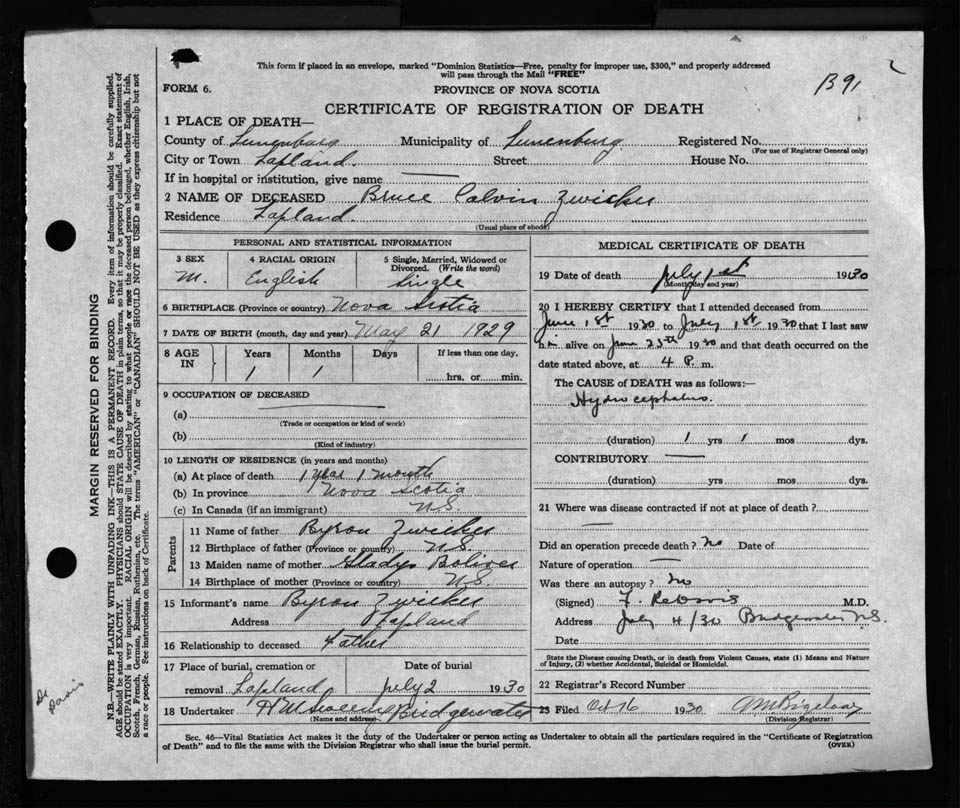 This form if placed in an envelope, marked "Dominion Statistics—Free, penalty for improper use, $300," and properly addressed
will pass through the Mail "FREE"
B91
FORM 6.
PROVINCE OF NOVA SCOTIA
CERTIFICATE OF REGISTRATION OF DEATH
1 PLACE OF DEATH—
County of Lunenburg Municipality of Lunenburg Registered No.
(For use of Registrar General only)
City or Town Lapland. Street House No.
If in hospital or institution, give name
2 NAME OF DECEASED Bruce Calvin Zwicker
Residence Lapland.
(Usual place of abode)
PERSONAL AND STATISTICAL INFORMATION
3 SEX 4 RACIAL ORIGIN 5 Single, Married, Widowed or
Divorced. (Write the word)
M. English Single
6 BIRTHPLACE (Province or country) Nova Scotia
7 DATE OF BIRTH (month, day and year) May 21 1929
8 AGE IN Years Months Days If less than one day,
1 1 hrs. or min.
9 OCCUPATION OF DECEASED
(a)
(Trade or occupation or kind of work)
(b)
(Kind of industry)
10 LENGTH OF RESIDENCE (in years and months)
(a) At place of death 1 year 1 month
(b) In province Nova Scotia
(c) In Canada (if an immigrant) N.S.
Parents
11 Name of father Byron Zwicker
12 Birthplace of father (Province or country) N.S.
13 Maiden name of mother Gladys Boliver
14 Birthplace of mother (Province or country) N.S.
15 Informant's name Byron Zwicker
Address Lapland
16 Relationship to deceased Father
17 Place of burial, cremation or Date of burial
removal Lapland July 2 1930
18 Undertaker Bridgewater
(Name and address)
MEDICAL CERTIFICATE OF DEATH
19 Date of death July 1st 1930
(Month, day and year)
20 I HEREBY CERTIFY that I attended deceased from
June 1st 1930 to July 1st 1930 that I last saw
h alive on June 25th 1930 and that death occurred on the
date stated above, at 4 P. m.
The CAUSE OF DEATH was as follows:
Hydrocephalus.
(duration) 1 yrs 1 mos dys.
CONTRIBUTORY
(duration) yrs. mos. dys.
21 Where was disease contracted if not at place of death?
Did an operation precede death? No Date of
Nature of operation
Was there an autopsy? No
(Signed) M.D.
Address July 4/30 Bridgewater N.S.
Date
State the Disease causing Death, or in death from Violent Causes, state (1) Means and Nature
of Injury, (2) whether Accidental, Suicidal or Homicidal.
22 Registrar's Record Number
23 Filed Oct 16 1930
(Division Registrar)
Sec. 46—Vital Statistics Act makes it the duty of the Undertaker or person acting as Undertaker to obtain all the particulars required in the "Certificate of Registration
of Death" and to file the same with the Division Registrar who shall issue the burial permit. (OVER)
MARGIN RESERVED FOR BINDING
N.B.—WRITE PLAINLY WITH UNFADING INK—THIS IS A PERMANENT RECORD. Every item of information should be carefully supplied.
AGE should be stated EXACTLY. PHYSICIANS should STATE CAUSE OF DEATH in plain terms, so that it may be properly classified. Exact statement of
OCCUPATION is very important. RACIAL ORIGIN will be described by stating to what people or race the deceased person belonged, whether English, Irish,
Scotch, French, German, Russian, Ruthenian, etc. The terms "AMERICAN" or "CANADIAN" SHOULD NOT BE USED as they express citizenship but not
a race or people. See instructions on back of Certificate.
Dr
Davis